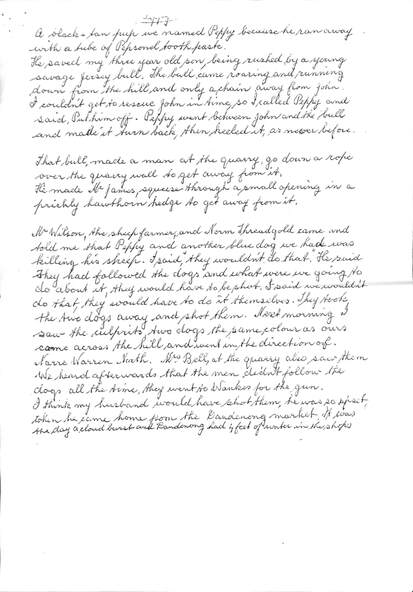 A black-tan pup we named Peppy because he ran away
with a tube of Pepsodent tooth paste.
He saved my three year old son, being rushed by a young
savage Jersey bull. The bull came roaring and running
down from the hill, and only a chain away from John.
I couldn't get to rescue John in time, so I called Peppy and
said, Put him off. Peppy went between John and the bull
and made it turn back, then heeled it, as never before.
That bull, made a man at the quarry, go down a rope
over the quarry wall to get away from it.
He made Mr James, squeeze through a small opening in a
prickly hawthorn hedge to get away from it.
Mr Wilson, the sheep farmer, and Norm Threadgold came and
told me that Peppy and another blue dog we had was
killing his sheep. I said "they wouldn't do that." He said
They had followed the dogs and what were we going to
do about it, they would have to be shot. I said we wouldn't
do that, they would have to do it themselves. They took
the two dogs away, and shot them. Next morning I
saw the culprits two dogs the same colour as ours
come across the hill, and went in the direction of
Narre Warren North. Mrs Bell, at the quarry also saw them
We heard afterwards that the men didn't follow the
dogs all the time, they went to Wankes for the gun.
I think my husband would have shot them, he was so upset,
when he came home from the Dandenong market. It was
the day a cloud burst and Dandenong had 4 feet of water in the shops